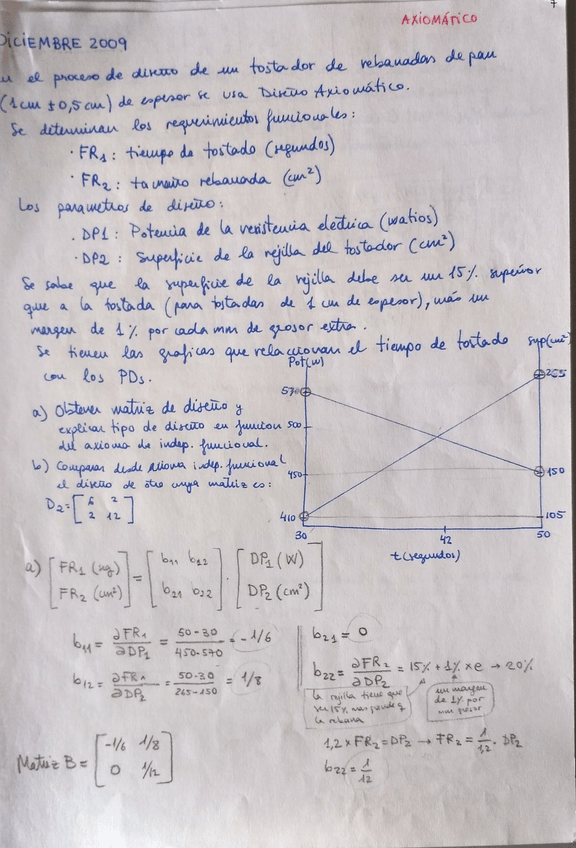 7
AXIOMÁTICO
DICIEMBRE 2009
el proceso de diseño de un tostador de rebanadas de pan
(1cm ± 0,5 cm) de espesor se usa Diseño Axiomático.
Se determinan los requerimientos funcionales:
· FR1: tiempo de tostado (segundos)
· FR2: tamaño rebanada (cm²)
Los parametros de diseño:
. DP1: Potencia de la resistencia eléctrica (watios)
· DP2: Superficie de la rejilla del tostador (cm²)
Se sabe que la superficie de la rejilla debe ser un 15% superior
que a la tostada (para tostadas de 1 cm de espesor), más un
margen de 1% por cada mm de grosor extra.
Se tienen las graficas que relaccionan el tiempo de tostado
con los PDs.
Pot(w)
Sup(cm²)
570
500
450
410
265
150
105
30
42
50
t(segundos)
a) Obtener matriz de diseño y
explicar tipo de diseño en funcion
del axioma de indep. funcional.
b) Comparar desde Axioma indep. funcional
el diseño de otro cuya matriz es:
D2= [6 2
2 12]
a) [FR1 (sg)
FR2 (cm²)] = [b11 b12
b21 b22] · [DP1 (W)
DP2 (cm²)]
b11 = ∂FR1/∂DP1 = 50-30/450-570 = -1/6
b12 = ∂FR1/∂DP2 = 50-30/265-150 = 1/8
Matriz B = [-1/6 1/8
0 1/12]
b21 = 0
b22 = ∂FR2/∂DP2 = 15% + 1% × e → 20%
la rejilla tiene que
ser 15% mas grande q
la rebana
un margen
de 1% por
mm grosor
1,2 × FR2 = DP2 → FR2 = 1/1,2 · DP2
b22 = 1/12